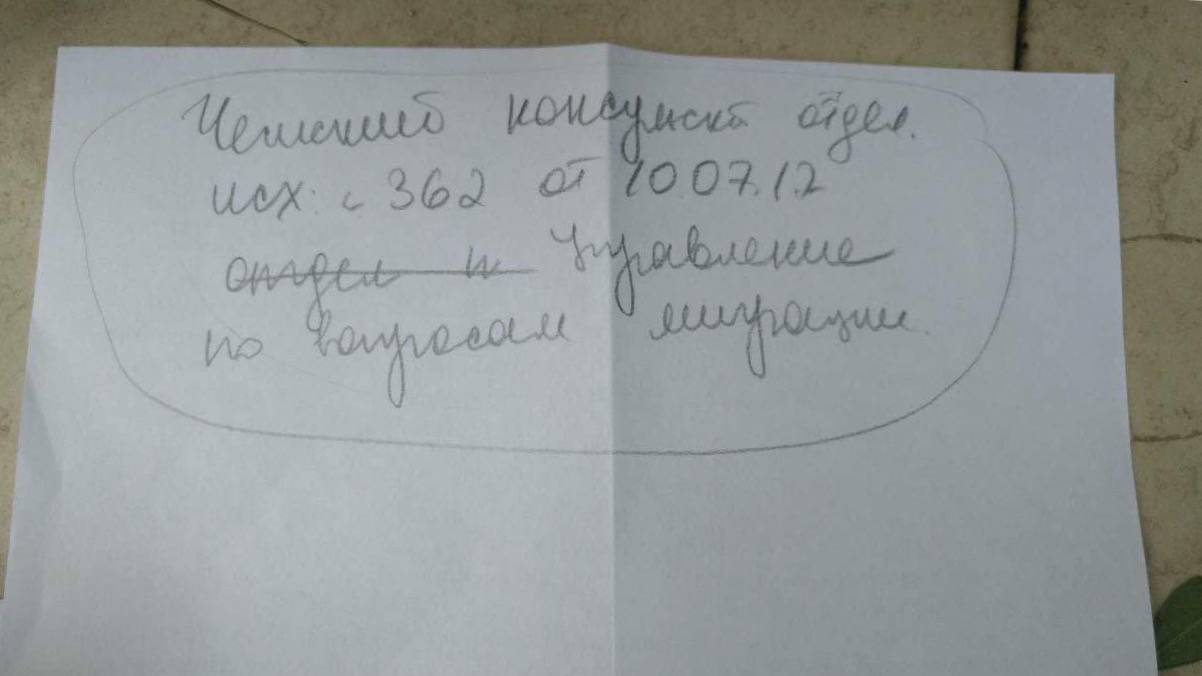 Чешский консульский отдел.
исх: с 362 от 10.07.17
отдел и Управление
по вопросам миграции.